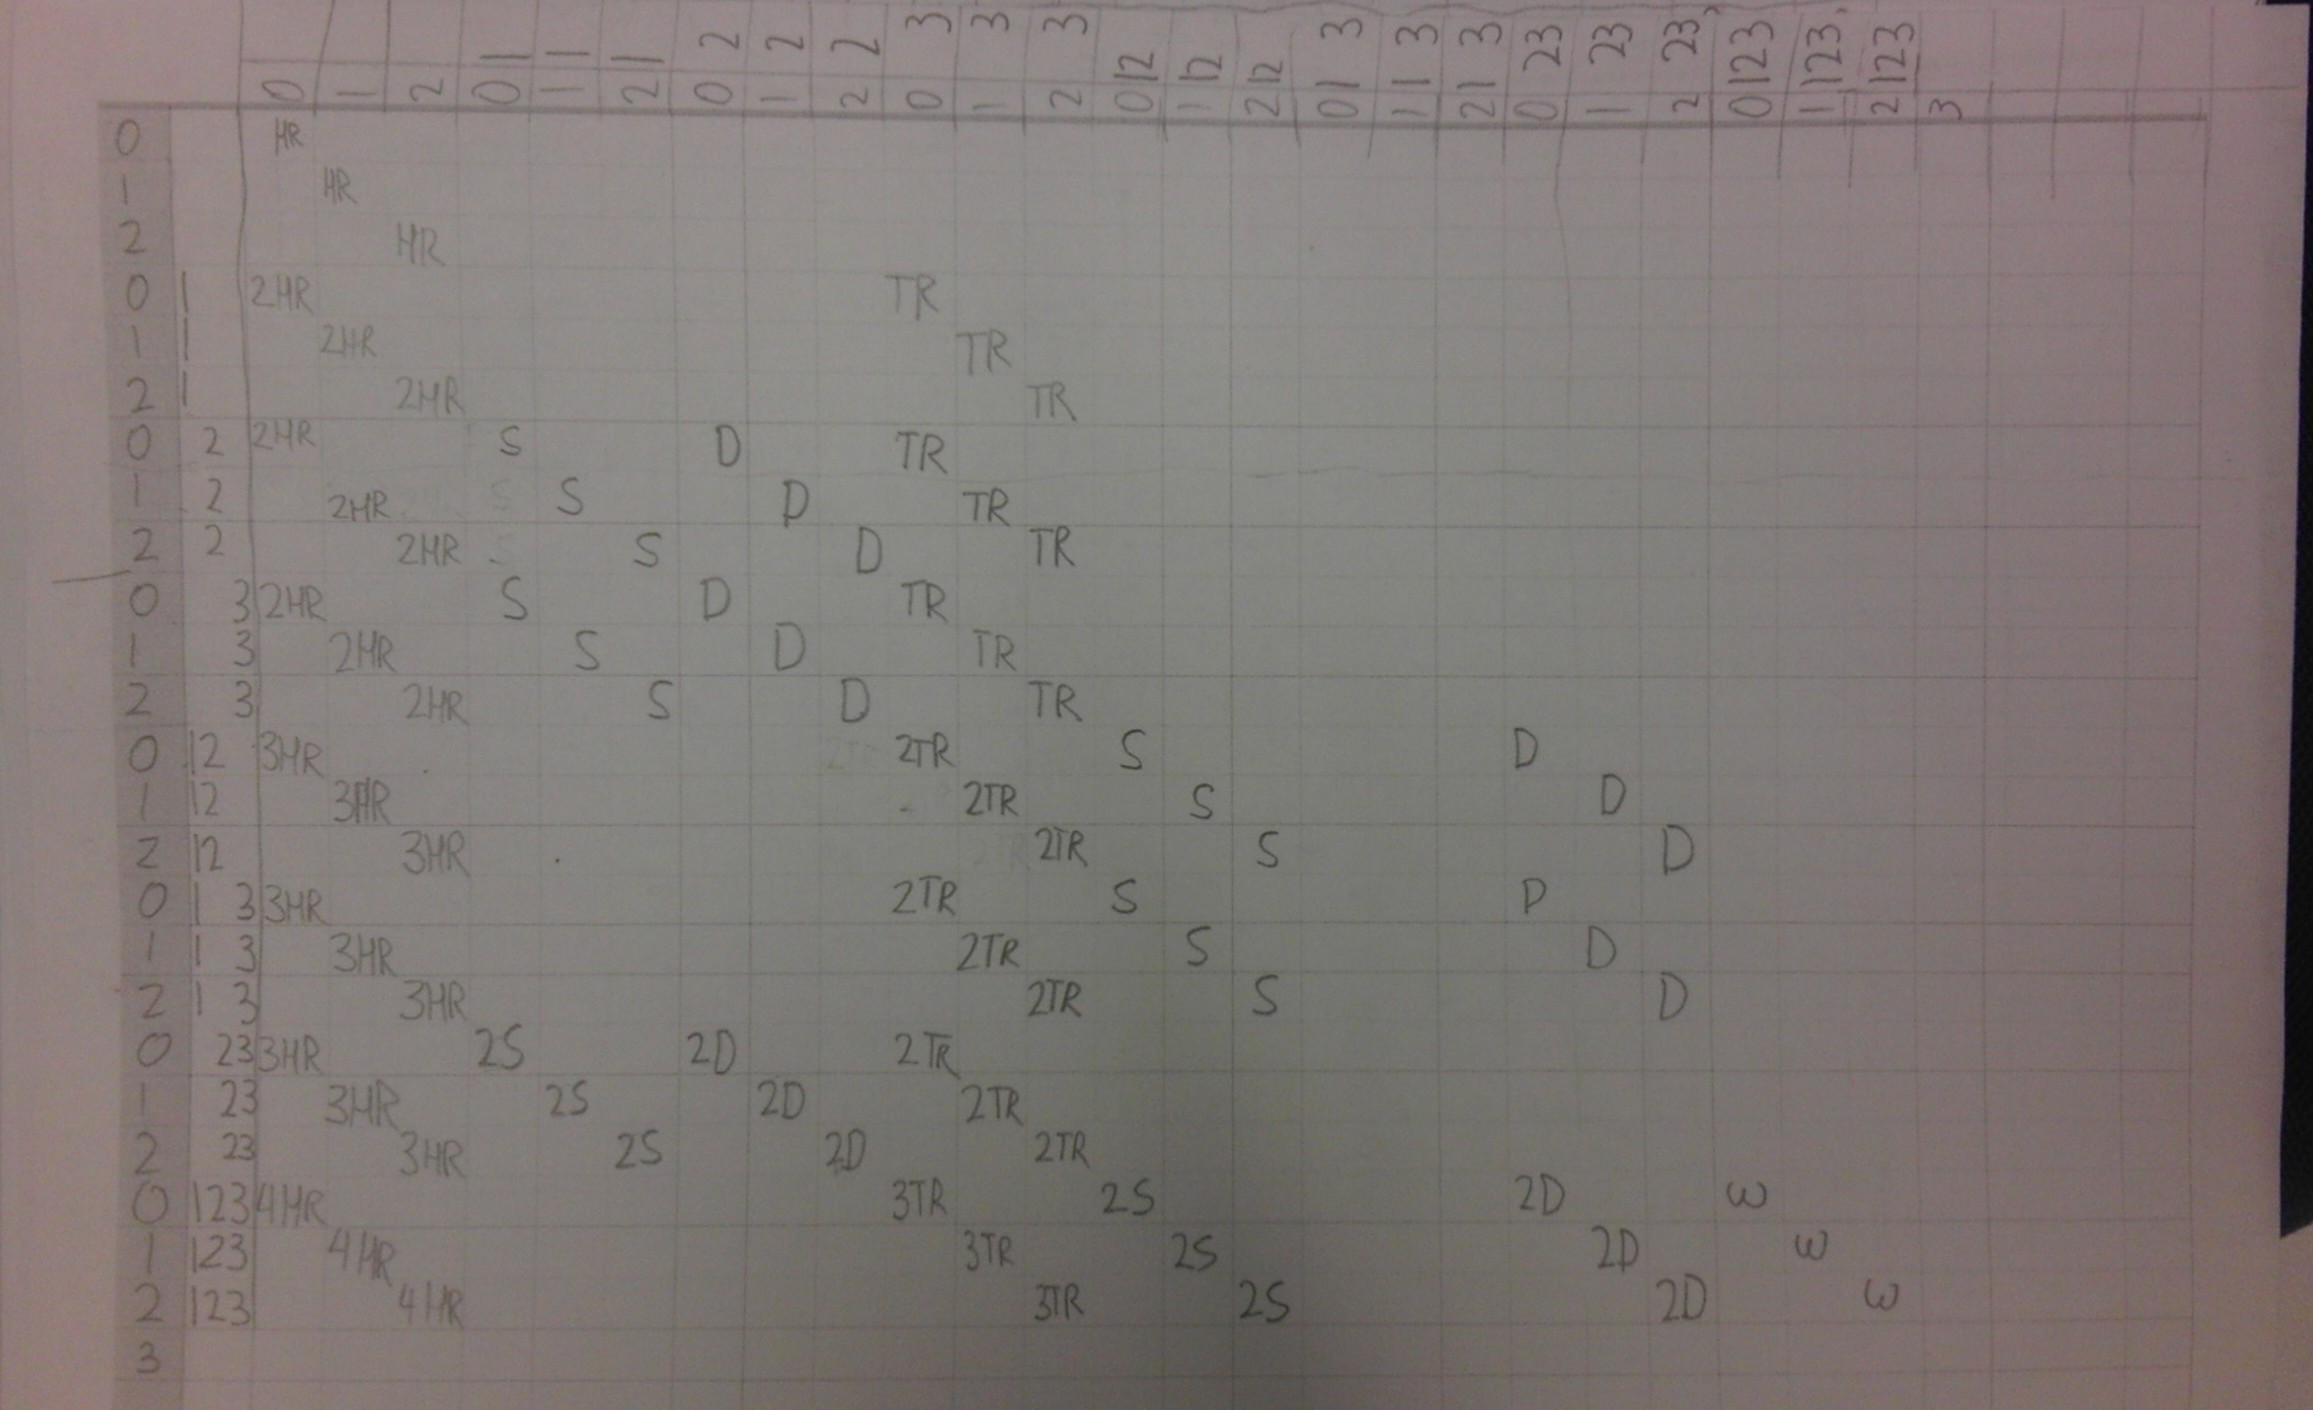 0 1 2 0 1 1 1 2 1 0 2 1 2 2 2 0 3 1 3 2 3 0 12 1 12 2 12 0 1 3 1 1 3 2 1 3 0 23 1 23 2 23 0 123 1 123 2 123 3
0 HR
1 HR
2 HR
0 1 2HR TR
1 1 2HR TR
2 1 2HR TR
0 2 2HR S D TR
1 2 2HR S D TR
2 2 2HR S D TR
0 3 2HR S D TR
1 3 2HR S D TR
2 3 2HR S D TR
0 12 3HR 2TR S D
1 12 3HR 2TR S D
2 12 3HR 2TR S D
0 1 3 3HR 2TR S D
1 1 3 3HR 2TR S D
2 1 3 3HR 2TR S D
0 23 3HR 2S 2D 2TR
1 23 3HR 2S 2D 2TR
2 23 3HR 2S 2D 2TR
0 123 4HR 3TR 2S 2D ω
1 123 4HR 3TR 2S 2D ω
2 123 4HR 3TR 2S 2D ω
3